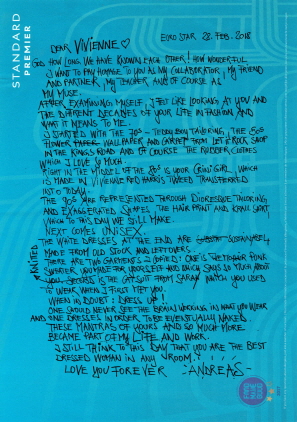 STANDARD
PREMIER
EURO STAR 28. FEB. 2018
DEAR VIVIENNE ♡
GOD, HOW LONG WE HAVE KNOWN EACH OTHER! HOW WONDERFUL.
I WANT TO PAY HOMAGE TO YOU AS MY COLLABORATOR, MY FRIEND
AND PARTNER, MY TEACHER AND OF COURSE AS
MY MUSE.
AFTER EXAMINING MYSELF, I FELT LIKE LOOKING AT YOU AND
THE DIFFERENT DECADES OF YOUR LIFE IN FASHION AND
WHAT IT MEANS TO ME.
I STARTED WITH THE 70s - TEDDY BOY TAILORING, THE 50s
FLOWER WALLPAPER AND CARPET FROM LET IT ROCK SHOP
IN THE KINGS ROAD AND OF COURSE THE RUBBER CLOTHES
WHICH I LOVE SO MUCH.
RIGHT IN THE MIDDLE OF THE 80s IS YOUR CRINI GIRL WHICH
IS MADE IN VIVIENNE RED HARRIS TWEED TRANSFERRED
INTO TODAY.
THE 90s ARE REPRESENTED THROUGH DIORESQUE TAILORING
AND EXAGGERATED SHAPES. THE HAIR PRINT AND SKIRT
WHICH TO THIS DAY WE STILL MAKE
NEXT COMES UNISEX.
THE WHITE DRESSES AT THE END ARE
MADE FROM OLD STOCK AND LEFTOVERS
THERE ARE TWO GARMENTS I COPIED: ONE IS THE PUNK
KNITTED
SWEATER YOU MADE FOR YOURSELF AND WHICH SAYS SO MUCH ABOUT
YOU. IS THE CATSUIT FROM SARAH WHICH YOU USED
TO WEAR WHEN I FIRST MET YOU.
WHEN IN DOUBT: DRESS UP!
ONE SHOULD NEVER SEE THE BRAIN WORKING IN WHAT YOU WEAR
AND ONE DRESSES IN ORDER TO BE EVENTUALLY NAKED
THESE MANTRAS OF YOURS AND SO MUCH MORE
BECAME PART OF MY LIFE AND WORK.
I STILL THINK TO THIS DAY THAT YOU ARE THE BEST
DRESSED WOMAN IN ANY ROOM!
LOVE YOU FOREVER ANDREAS